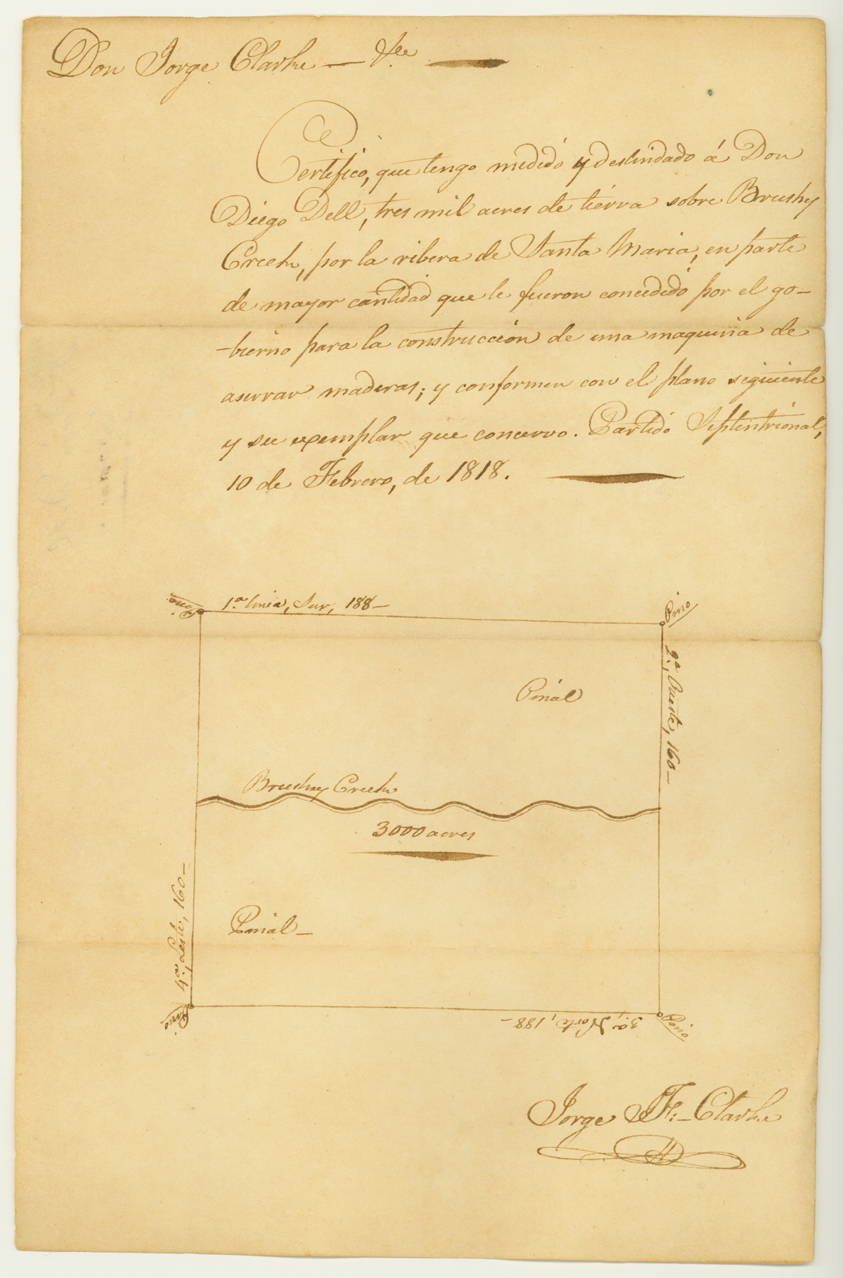 Don Jorge Clarke — &ce
Certifico, que tengo medido y deslindado á Don
Diego Dell, tres mil acres de tierra sobre Brushy
Creek, por la ribera de Santa Maria, en parte
de mayor cantidad que le fueron concedido por el go-
-bierno para la construccion de una maquina de
aserrar maderas; y conforme con el plano siguiente
y su exemplar que concervo. Partido Septentrional,
10 de Febrero, de 1818.
Pino
1.a linea, Sur, 188—
Pino
2.a Oueste, 160—
Pinál
Brushy Creek
3000 acres
4.a, Leste, 160—
Pinál—
Pino
3.a, Norte, 188—
Pino
Jorge J. F. Clarke